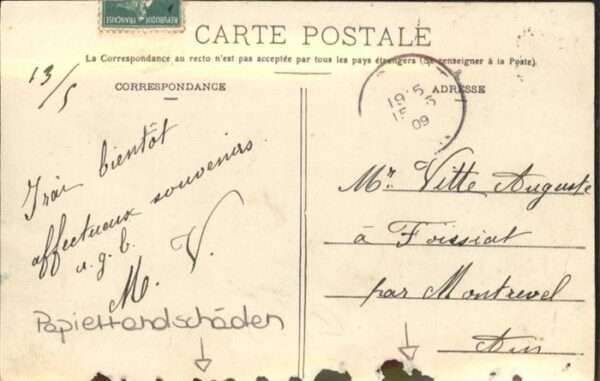 REPUBLIQUE FRANÇAISE
CARTE POSTALE
La Correspondance au recto n'est pas acceptée par tous les pays étrangers (Se renseigner à la Poste).
13/5
CORRESPONDANCE
ADRESSE
19-5
15 5
09
Irai bientôt
affectueux souvenirs
a.g.b.
M. V.
Mr. Vitte Auguste
à Foissiat
par Montrevel
Ain
Papierrandschäden